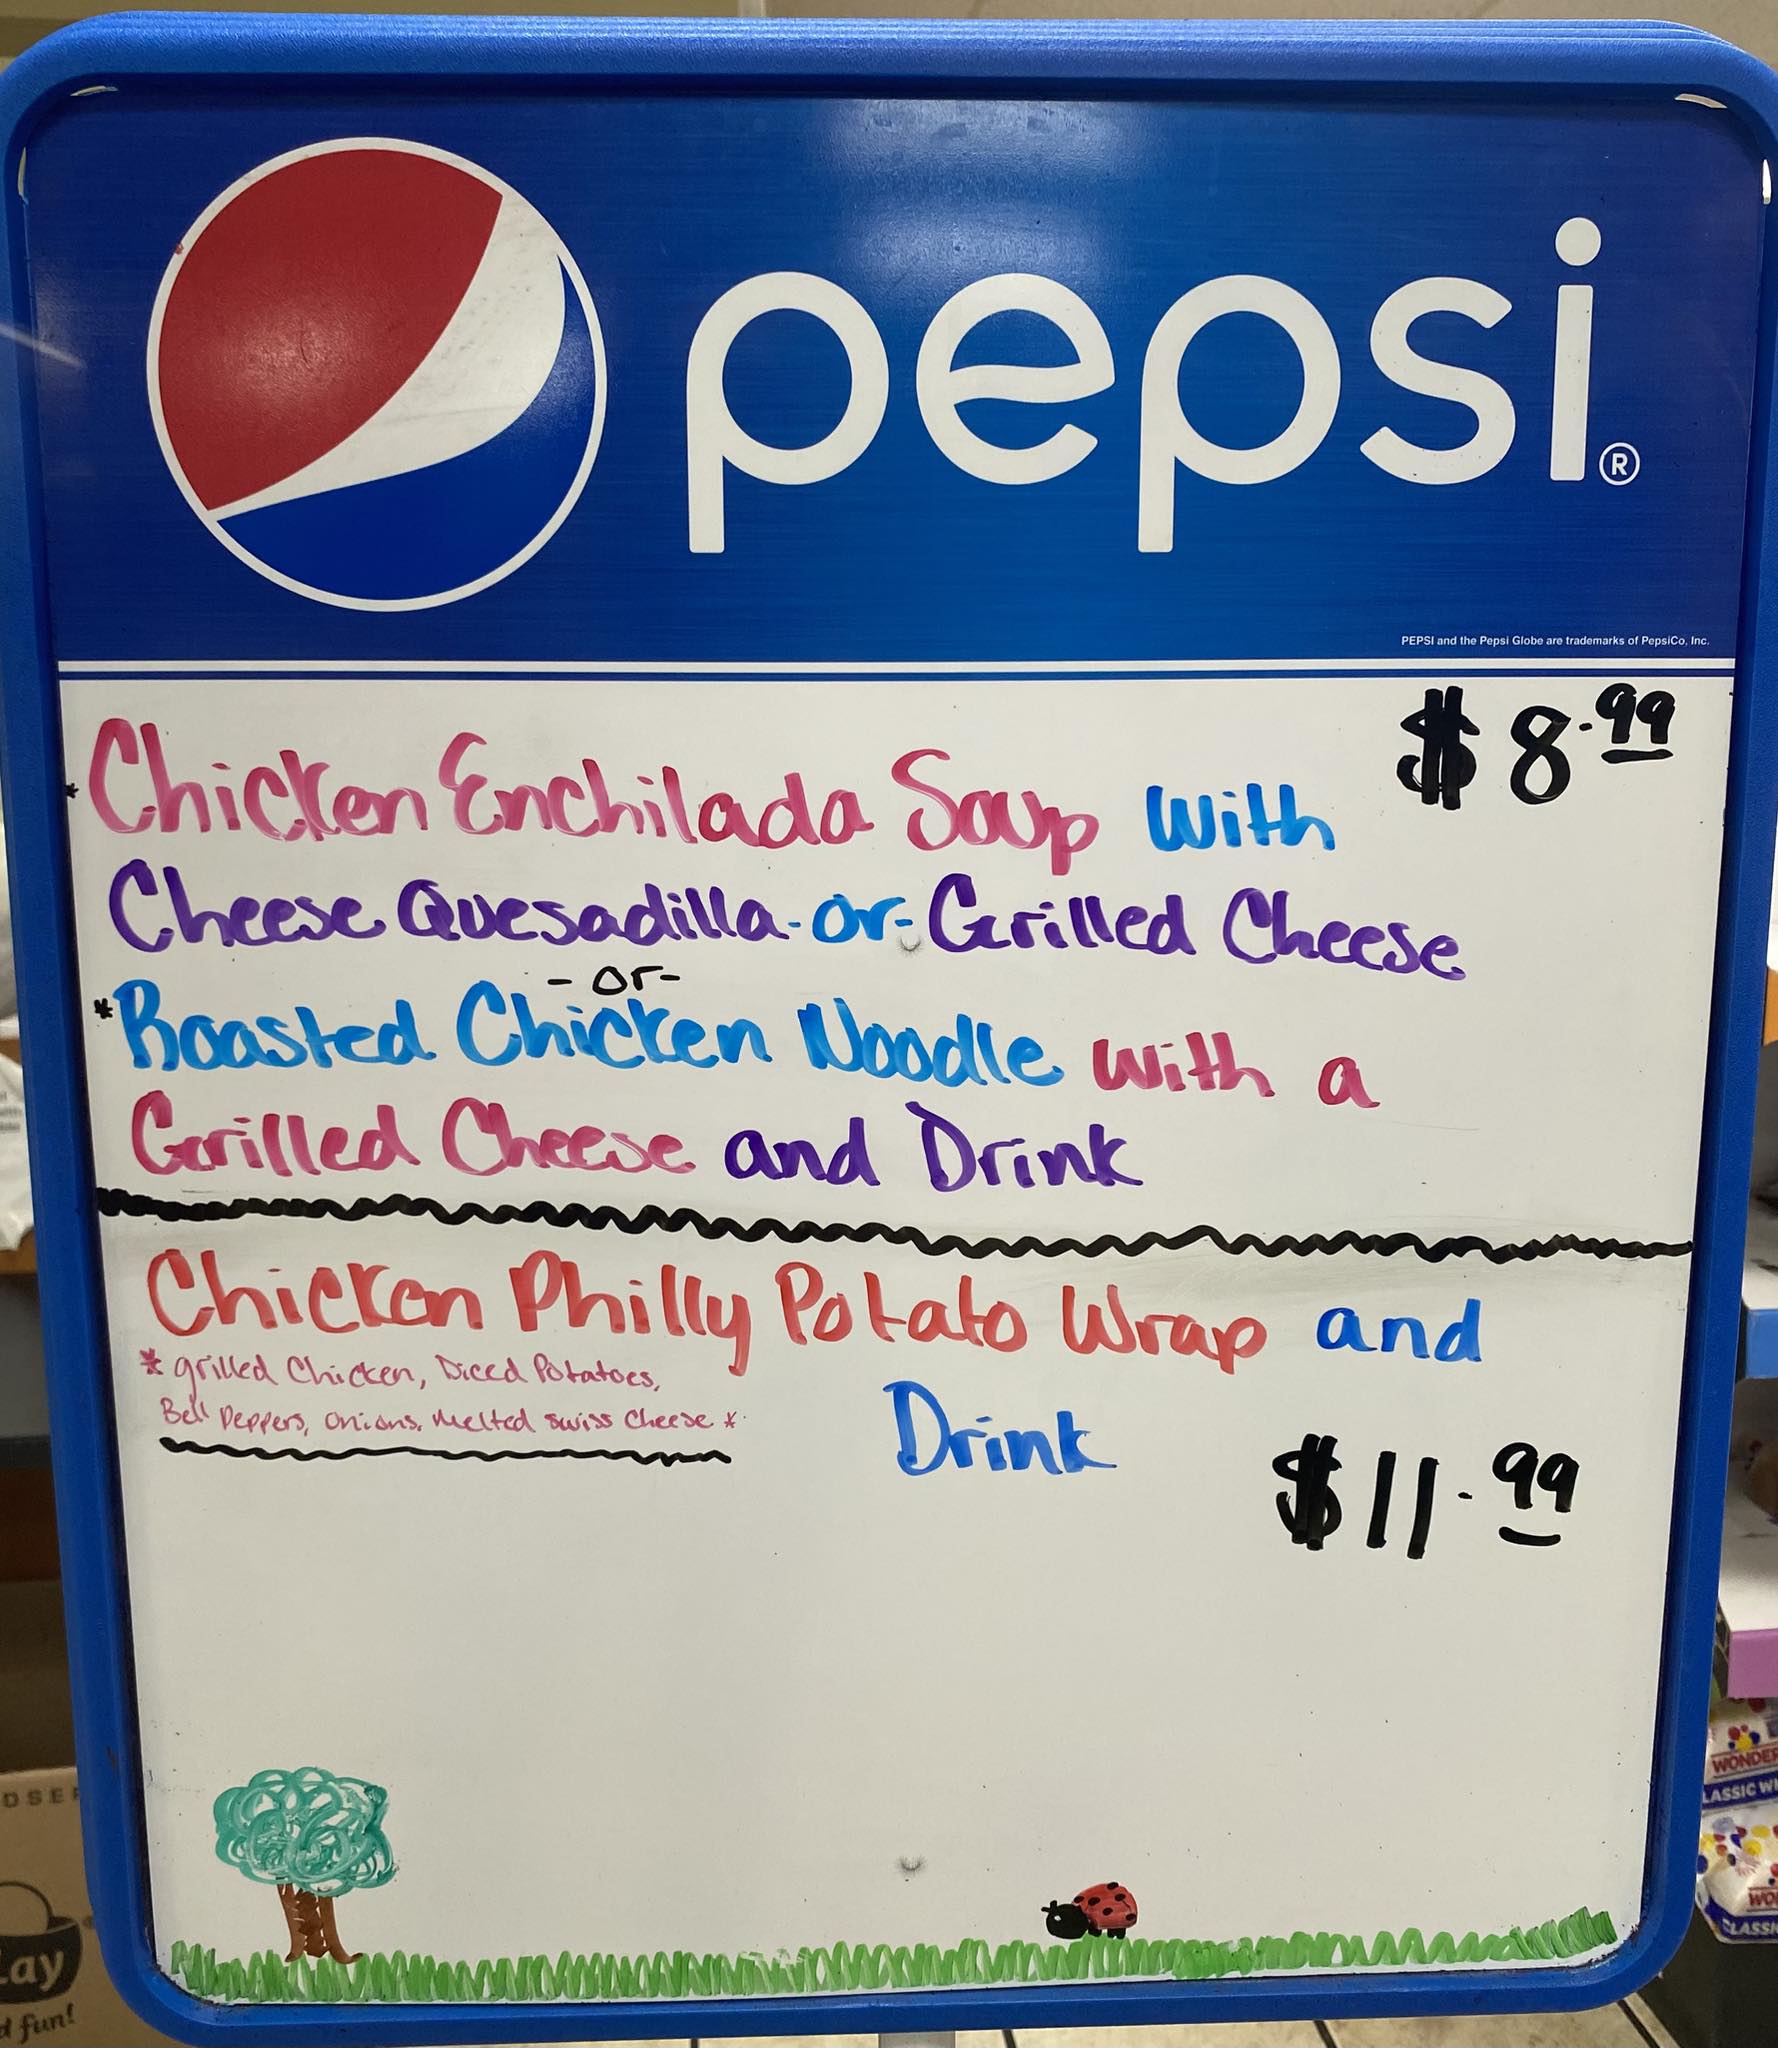 pepsi®
PEPSI and the Pepsi Globe are trademarks of PepsiCo, Inc.
$8.99
*Chicken Enchilada Soup with
Cheese Quesadilla-or-Grilled Cheese
-or-
*Roasted Chicken Noodle with a
Grilled Cheese and Drink
Chicken Philly Potato Wrap and
Drink
* grilled Chicken, Diced Potatoes,
Bell Peppers, Onions, Melted Swiss Cheese *
$11.99
WONDER
CLASSIC